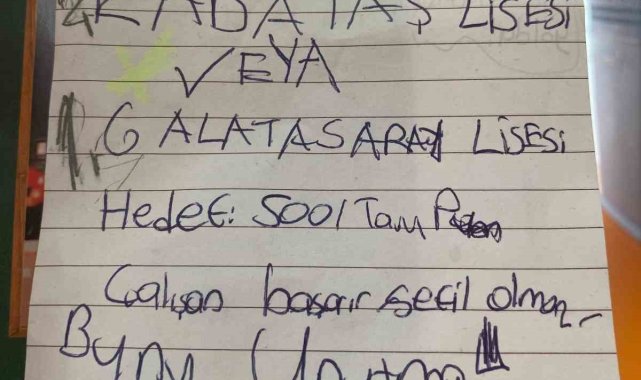 2 KABATAŞ LİSESİ
VEYA
1, GALATASARAY LİSESİ
Hedef: 500/Tam Puan
Çalışan başarır sefil olmaz,
Bunu Unutma!!!